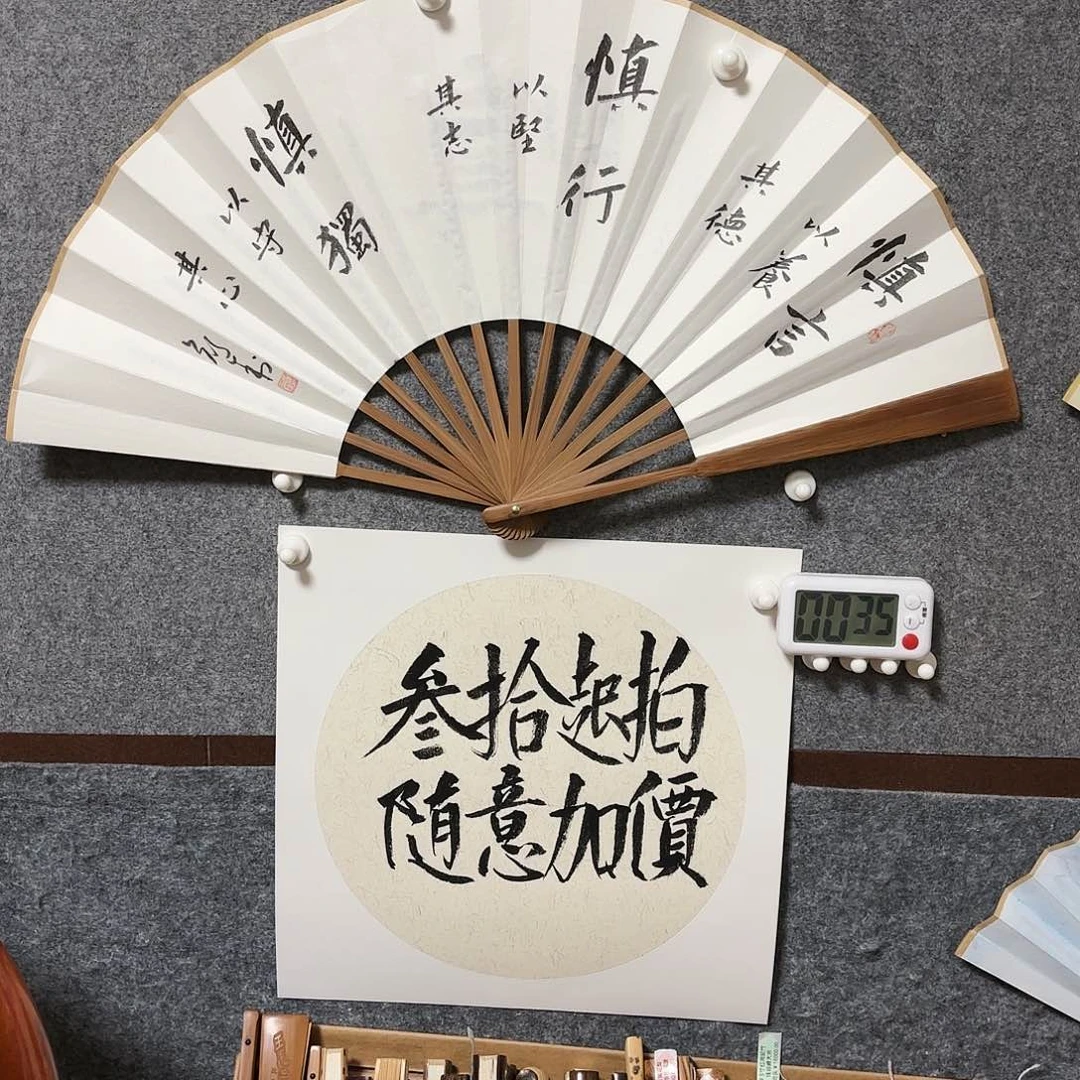 慎言
以養
其德
慎行
以堅
其志
慎獨
以守
其心
叁拾起拍
随意加價
00 35